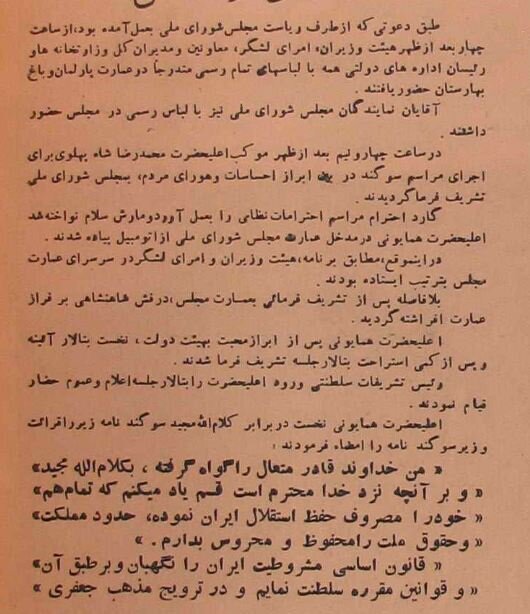 طبق دعوتی که از طرف ریاست مجلس شورای ملی بعمل آمده بود، از ساعت
چهار بعد از ظهر هیئت وزیران، امرای لشگر، معاونین و مدیران کل وزارتخانه ها و
رئیسان اداره های دولتی همه با لباسهای تمام رسمی متدرجاً دو عمارت پارلمان و باغ
بهارستان حضور یافتند .
آقایان نمایندگان مجلس شورای ملی نیز با لباس رسمی در مجلس حضور
داشتند .
در ساعت چهار و نیم بعد از ظهر موکب اعلیحضرت محمدرضا شاه پهلوی برای
اجرای مراسم سوگند در بین ابراز احساسات و هورای مردم، بمجلس شورای ملی
تشریف فرما گردیدند .
گارد احترام مراسم احترامات نظامی را بعمل آورد و مارش سلام نواخته شد
اعلیحضرت همایونی در مدخل عمارت مجلس شورای ملی از اتومبیل پیاده شدند .
در اینموقع، مطابق برنامه، هیئت وزیران و امرای لشگر در سرسرای عمارت
مجلس بترتیب ایستاده بودند .
بلافاصله پس از تشریف فرمائی بعمارت مجلس، درفش شاهنشاهی بر فراز
عمارت افراشته گردید .
اعلیحضرت همایونی پس از ابراز محبت بهیئت دولت ، نخست بتالار آئینه
و پس از کمی استراحت بتالار جلسه تشریف فرما شدند .
رئیس تشریفات سلطنتی ورود اعلیحضرت را بتالار جلسه اعلام و عموم حضار
قیام نمودند .
اعلیحضرت همایونی نخست در برابر کلام الله مجید سوگند نامه زیر را قرائت
و زیر سوگند نامه را امضاء فرمودند :
« من خداوند قادر متعال را گواه گرفته ، بکلام الله مجید»
« و بر آنچه نزد خدا محترم است قسم یاد میکنم که تمام هم»
« خود را مصروف حفظ استقلال ایران نموده، حدود مملکت»
« و حقوق ملت را محفوظ و محروس بدارم . »
« قانون اساسی مشروطیت ایران را نگهبان و بر طبق آن»
« و قوانین مقرره سلطنت نمایم و در ترویج مذهب جعفری »